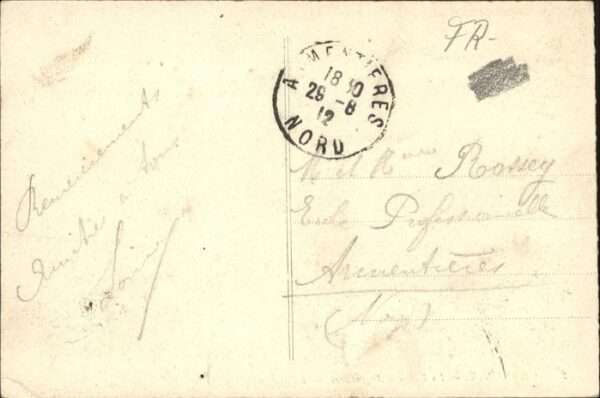 FR-
ARMENTIERES
18 30
29 - 8
12
NORD
Remerciements
Amitiés à tous
M et Mme Rossey
Ecole Professionnelle
Armentières
(Nord)